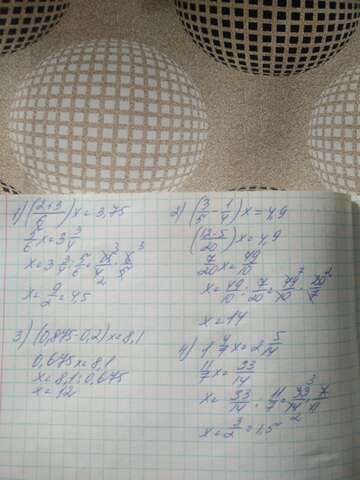 1) (2+3/6)x = 3,75
5/6 x = 3 3/4
x = 3 3/4 : 5/6 = 15/4 · 6/5
x = 9/2 = 4,5
2) (3/5 - 1/4)x = 4,9
(12-5/20)x = 4,9
7/20 x = 49/10
x = 49/10 : 7/20 = 49/10 · 20/7
x = 14
3) (0,875-0,2)x = 8,1
0,675x = 8,1
x = 8,1:0,675
x = 12
4) 1 4/7 x = 2 5/14
11/7 x = 33/14
x = 33/14 : 11/7 = 33/14 · 7/11
x = 3/2 = 1,5